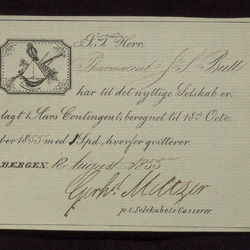 S. T. Herr
Pharmaceut J. S. Bull
har til det nyttige Selskab er-
lagt 1 Aars Contingent, beregnet til 18de Octo-
ber 1855 med 1 Spd., hvorfor qvitterer
BERGEN 12 August 1855
Gerhd. Meltzer
p.t. Selskabets Casserer.